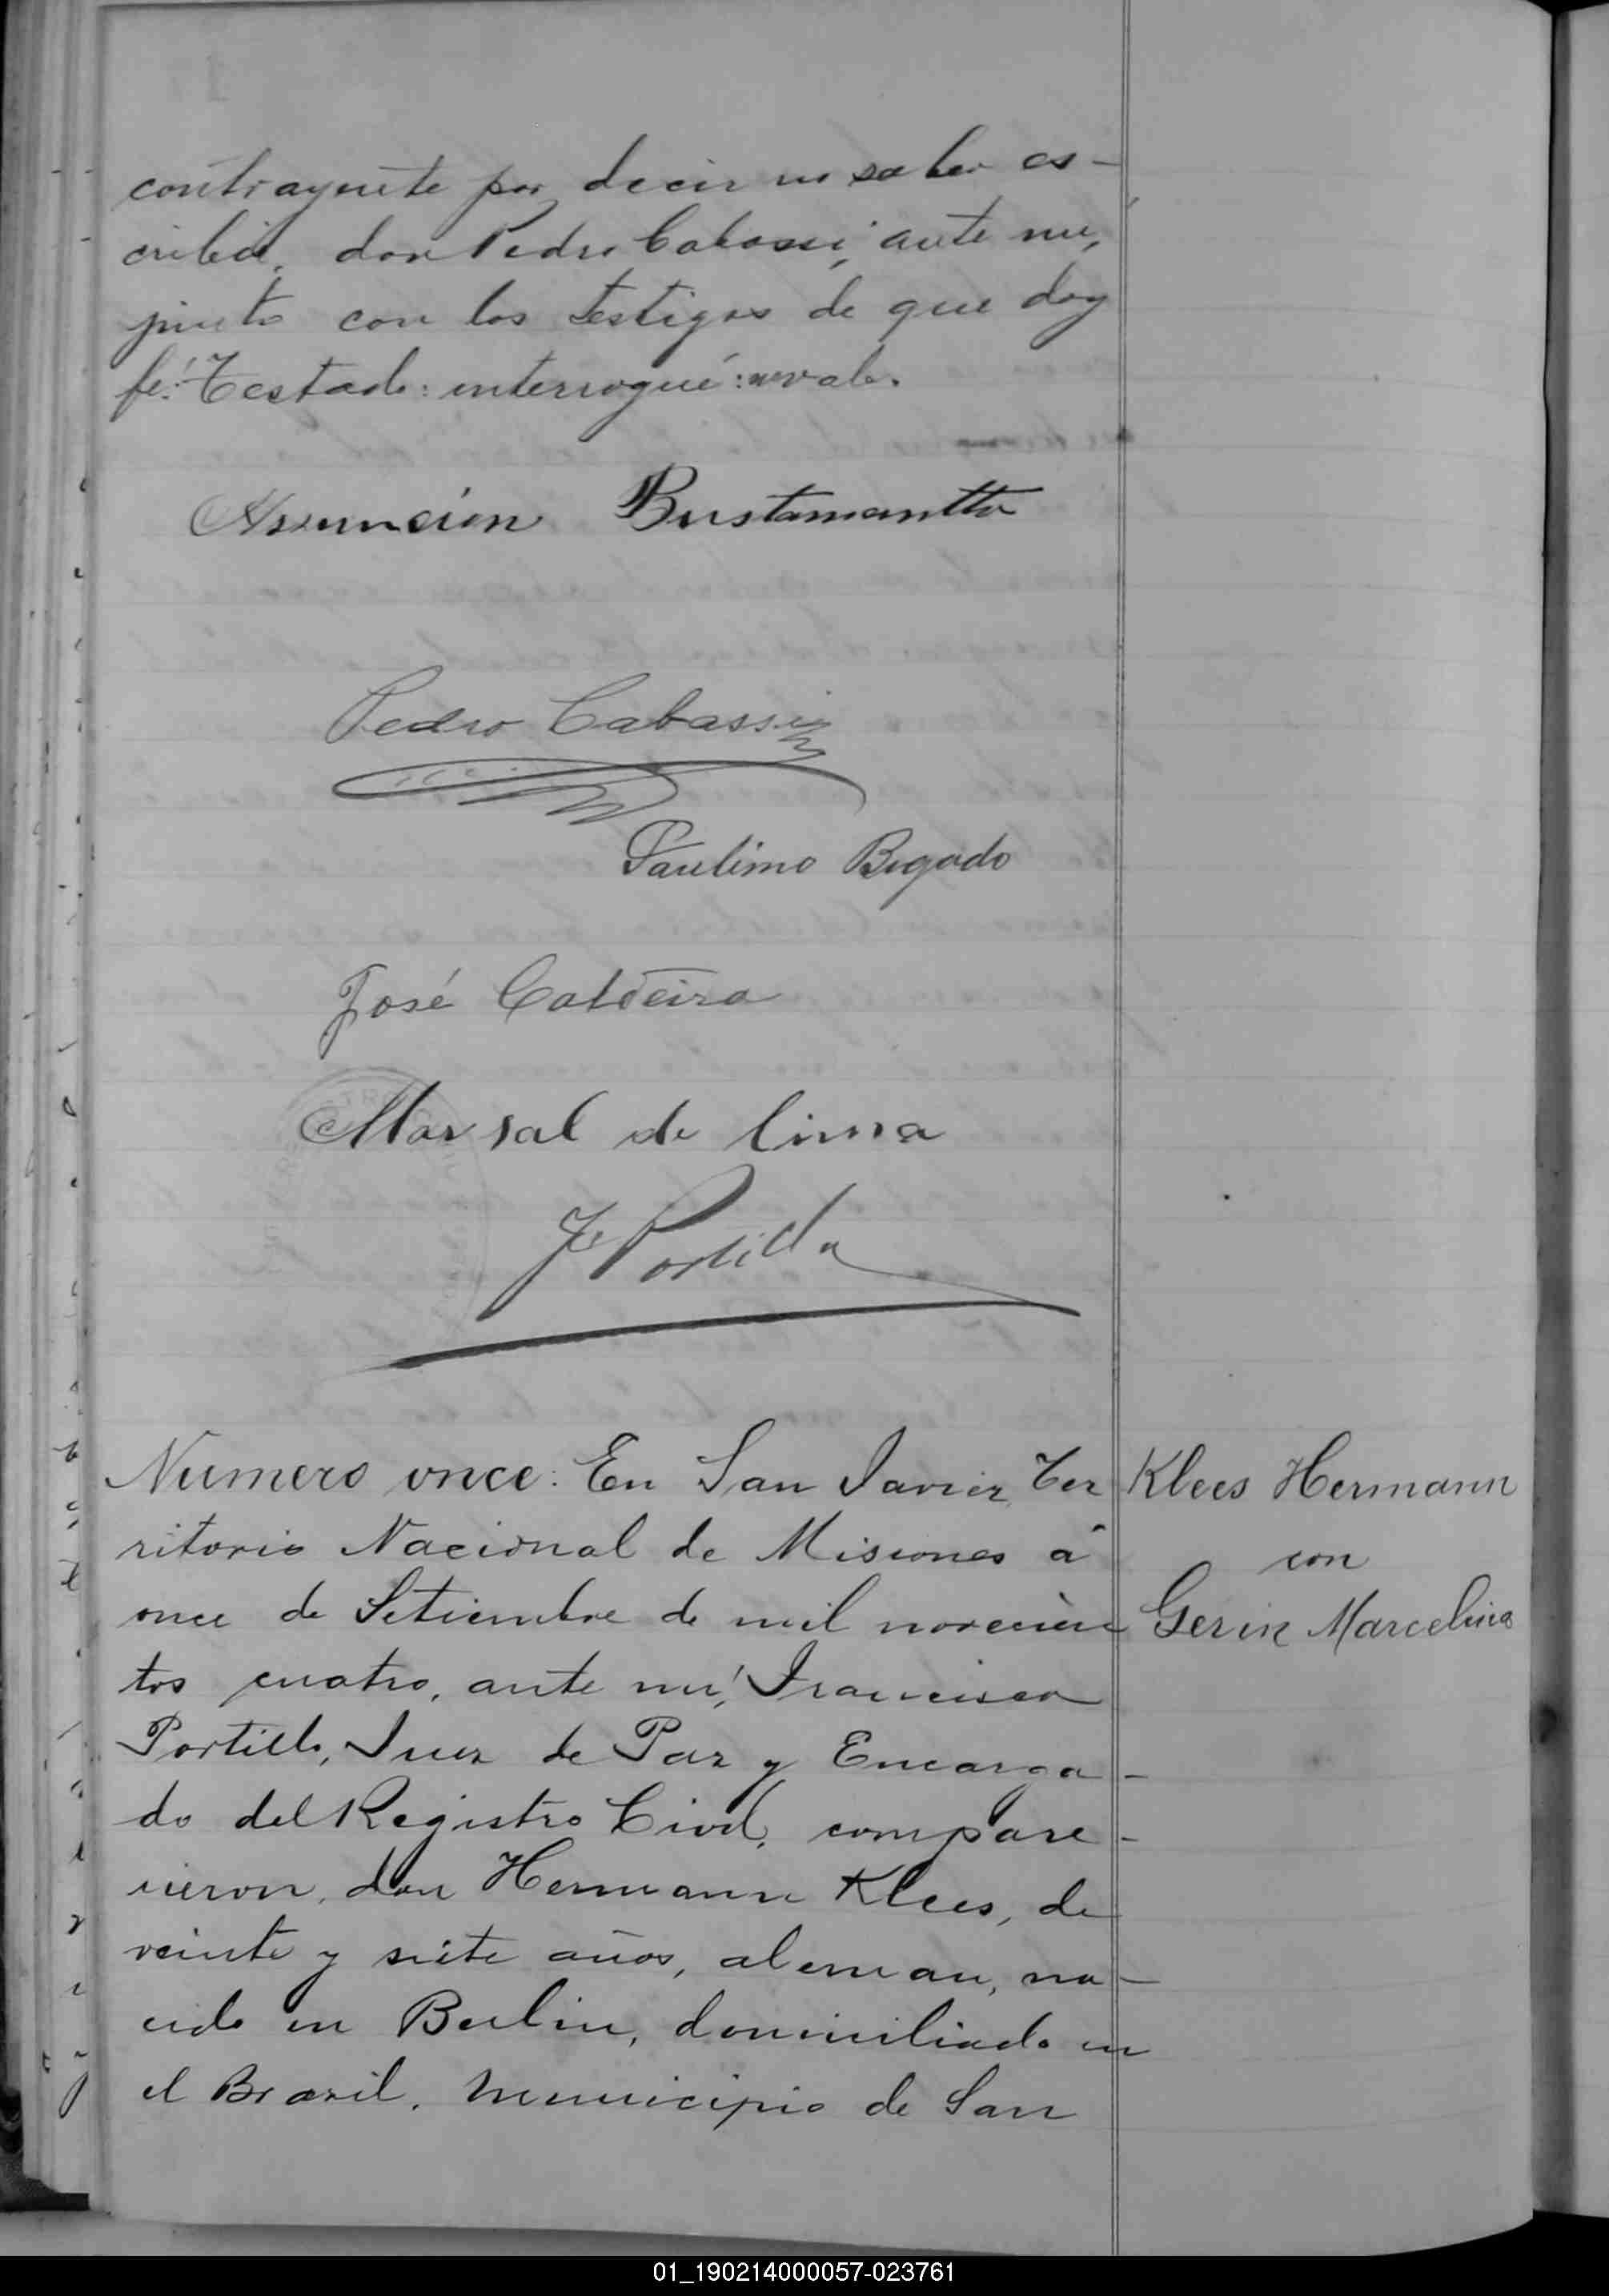 contrayente por decir no saber es-
cribir, don Pedro Cabassi, ante mi,
junto con los testigos de que doy
fé. Testado: interrogué: no vale.
Assuncion Bustamantte
Pedro Cabassi
Paulino Bogado
José Caldeira
Marsal de lima
F Portillo
Numero once: En San Javier, Ter
ritorio Nacional de Misiones á
once de Setiembre de mil novecien
tos cuatro, ante mi, Francisco
Portillo, Juez de Paz y Encarga-
do del Registro Civil, compare-
cieron, don Hermann Klees, de
veinte y siete años, aleman, na-
cido en Berlin, domiciliado en
el Brazil, Municipio de San
Klees Hermann
con
Gerin Marcelina
01_190214000057-023761